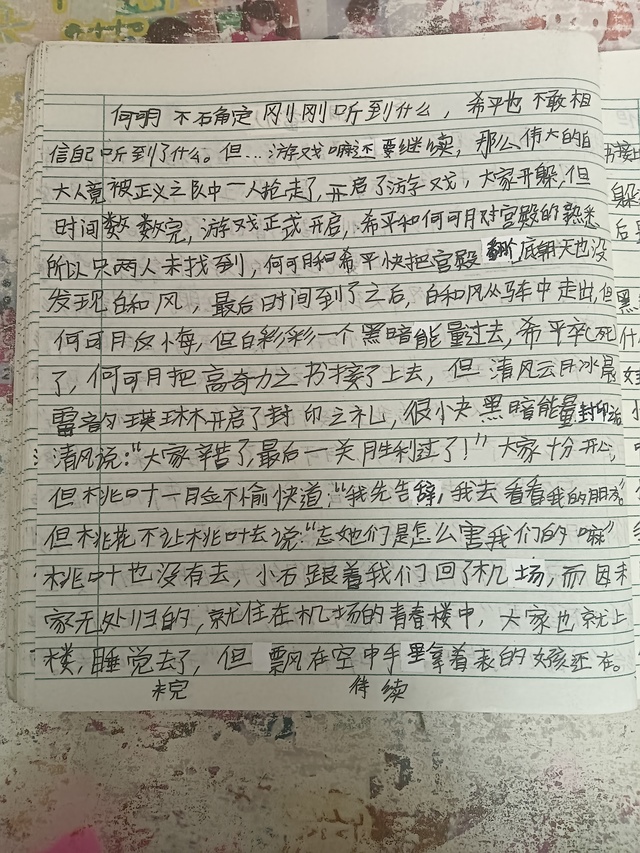 何明不确定刚刚听到什么，希平也不敢相
信自己听到了什么。但…游戏嘛还要继续，那么伟大的白
大人竟被正义之队中一人抢走了，开启了游戏，大家开躲，但
时间数数完，游戏正式开启，希平和何可月对宫殿的熟悉
所以只两人未找到，何可月和希平快把宫殿翻个底朝天也没
发现白和风，最后时间到了之后，白和风从马车中走出，但
何可月反悔，但白彩彩一个黑暗能量过去，希平卒死
了，何可月把高奇力之书接了上去，但清风云月冰晨
雷韵瑛琳木开启了封印之礼，很小夬黑暗能量封印
清风说：“大家辛苦了，最后一关胜利过了！”大家十分开心，
但桃叶一脸不愉快道：“我先告辞，我去看看我的朋友。
但桃花不让桃叶去说：“忘她们是怎么害我们的嘛”
桃叶也没有去，小石跟着我们回了机场，而因未
家无处归的，就住在机场的青春楼中，大家也就上
楼，睡觉去了，但飘在空中手里拿着表的女孩还在。
未完 待续